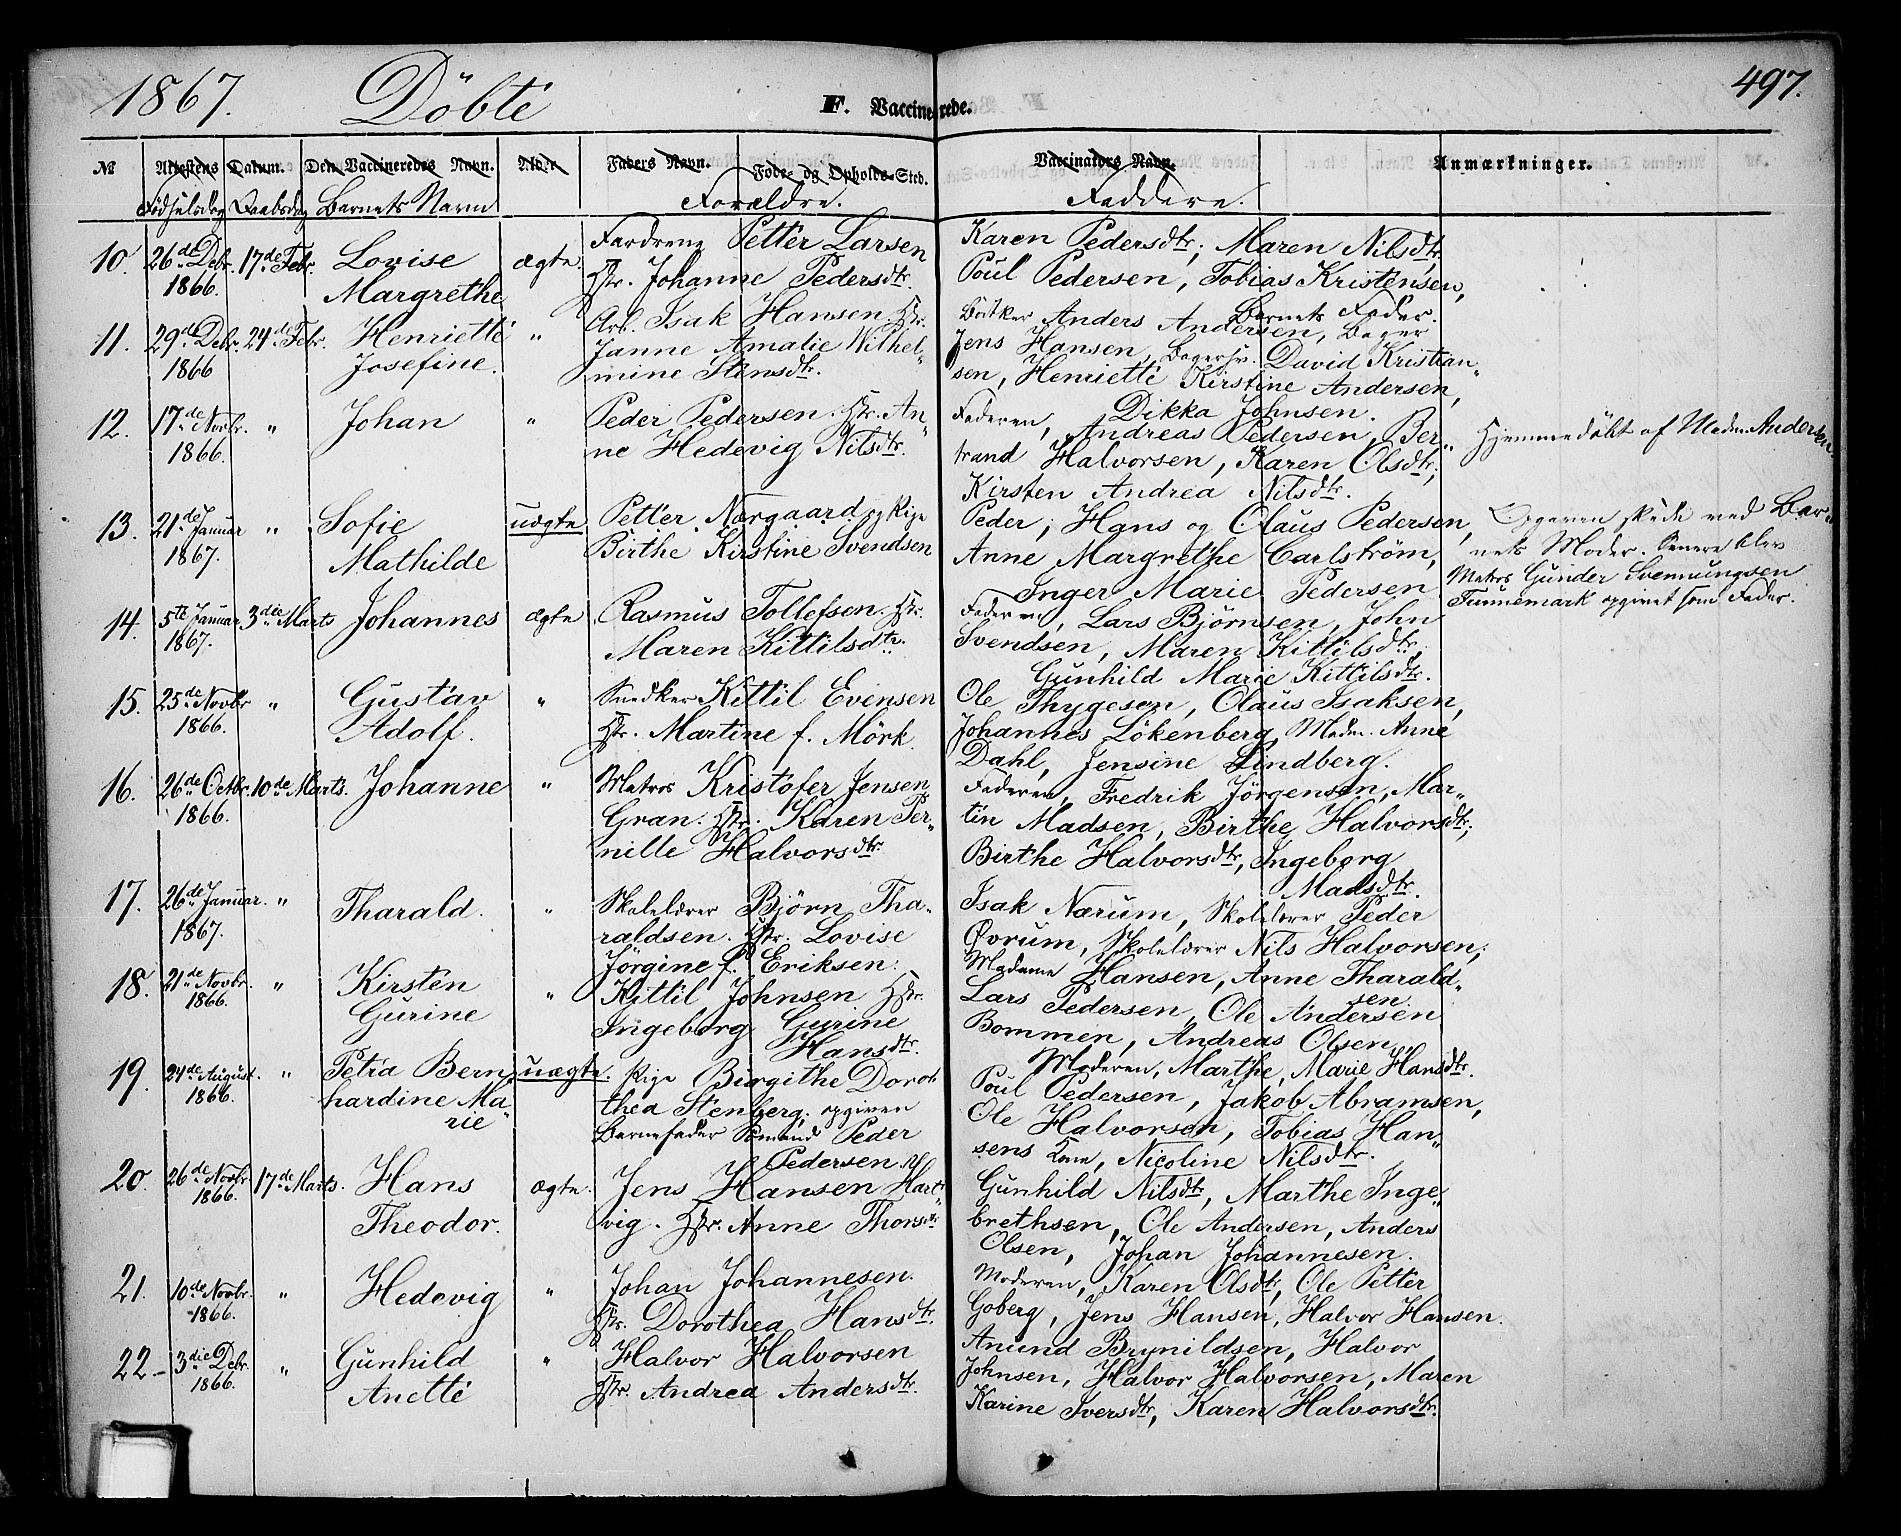 1867. Döbte F. Vaccinerede. 497.
№ Attestens Datum. Den Vaccineredes Navn. Alder. Faders Navn. Føde- og Opholds-Sted. Vaccinators Navn. Anmærkninger.
Födselsdag Daabsdag Barnets Navn Forældre. Faddere.
10. 26de Debr. 1866. 17de Febr. Lovise Margrethe ægte.
Petter Larsen
Hstr. Johanne Pedersdtr.
Karen Pedersdtr; Maren Nilsdtr,
Poul Pedersen, Tobias Kristensen,
Barnets Fader.
11. 29de Debr. 1866 24de Febr. Henriette Josefine. "
Arb. Isak Hansen. Hstr.
Janne Amalie Wilhel-
mine Stensdtr.
Bödker Anders Andersen, Bager
Jens Hansen, Bagersv. David Kristian-
sen, Henriette Kirstine Andersen,
Dikka Johnsen.
12. 17de Novbr. 1866. " Johan "
Peder Pedersen. Hstr. An-
ne Hedevig Nilsdtr.
Faderen, Andreas Pedersen, Ber-
trand Halvorsen, Karen Olsdtr;
Kirsten Andrea Nilsdtr.
Hjemmedöbt af Madm. Andersen
13. 21de Januar 1867. " Sofie Mathilde uægte.
Petter Nørgaard og Pige
Birthe Kirstine Svendsen
Peder, Hans og Olaus Pedersen,
Anne Margrethe Carlström,
Inger Marie Pedersen
Opgaven skede ved Bar-
nets Moder. Senere blev
Matros Gunder Svennungsen
Tunnemark opgivet som Fader.
14. 5te Januar 1867. 3die Marts Johannes ægte
Rasmus Tollefsen. Hstr.
Maren Kittilsdtr.
Faderen, Lars Björnsen, John
Svendsen, Maren Kittilsdtr,
Gunhild Marie Kittilsdtr.
15. 25de Novbr 1866. " Gustav Adolf. "
Snedker Kittil Evensen
Hstr. Martine f. Mörk.
Ole Thygesen, Olaus Isaksen,
Johannes Lökenberg, Madm. Anne
Dahl, Jensine Lindberg.
16. 26de Octbr. 1866. 10de Marts. Johanne "
Matros Kristofer Jensen
Gran. Hstr. Karen Per-
nille Halvorsdtr.
Faderen, Fredrik Jörgensen, Mar-
tin Madsen, Birthe Halvorsdtr;
Birthe Halvorsdtr, Ingeborg
Madsdtr.
17. 26de Januar. 1867. " Tharald. "
Skolelærer Björn Tha-
raldsen. Hstr. Lovise
Jörgine f. Eriksen.
Isak Nærum, Skolelærer Peder
Øvrum, Skolelærer Nils Halvorsen,
Madame Hansen, Anne Tharald-
sen.
18. 21de Novbr. 1866. " Kirsten Gurine "
Kittil Johnsen Hstr.
Ingeborg Gurine
Hansdtr.
Lars Pedersen, Ole Andersen
Bommen, Andreas Olsen,
Moderen, Marthe Marie Hansdtr.
19. 24de August. 1866. " Petra Bern-
hardine Ma-
rie uægte.
Pige Birgithe Doroh
thea Stenberg. opgiven
Barnefader Sömand Peder
Pedersen.
Poul Pedersen, Jakob Abramsen,
Ole Halvorsen, Tobias Han-
sens Kone, Nicoline Nilsdtr.
20. 26de Novbr 1866. 17de Marts. Hans Theodor. ægte.
Jens Hansen Hart-
vig. Hstr. Anne Thorsdtr
Gunhild Nilsdtr, Marthe Inge-
brethsen, Ole Andersen, Anders
Olsen, Johan Johannesen.
21. 10de Novbr. 1866. " Hedevig "
Johan Johannesen.
Hstr. Dorothea Hansdtr.
Moderen, Karen Olsdtr, Ole Petter
Goberg, Jens Hansen, Halvor Hansen.
22- 3die Debr. 1866. " Gunhild Anette "
Halvor Halvorsen
Hstr. Andrea Andersdtr.
Anund Brynildsen, Halvor
Johnsen, Halvor Halvorsen, Maren
Karine Iversdtr, Karen Halvorsdtr.